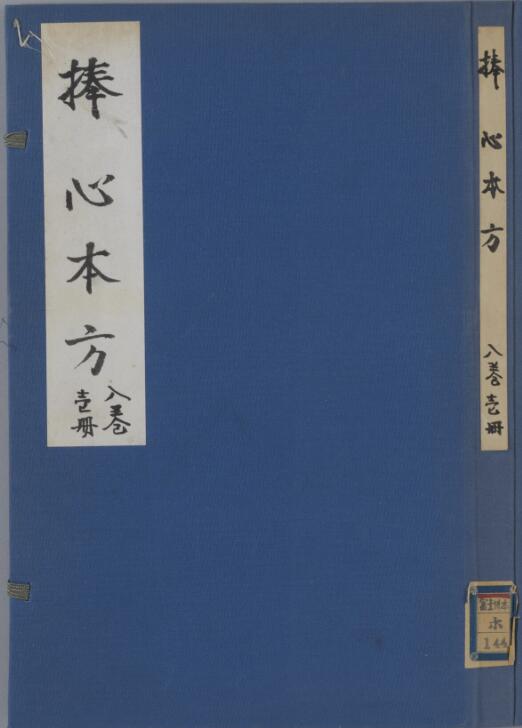 捧心本方
八巻
壱冊
捧心本方 八巻壱冊
富士川本
ホ
144